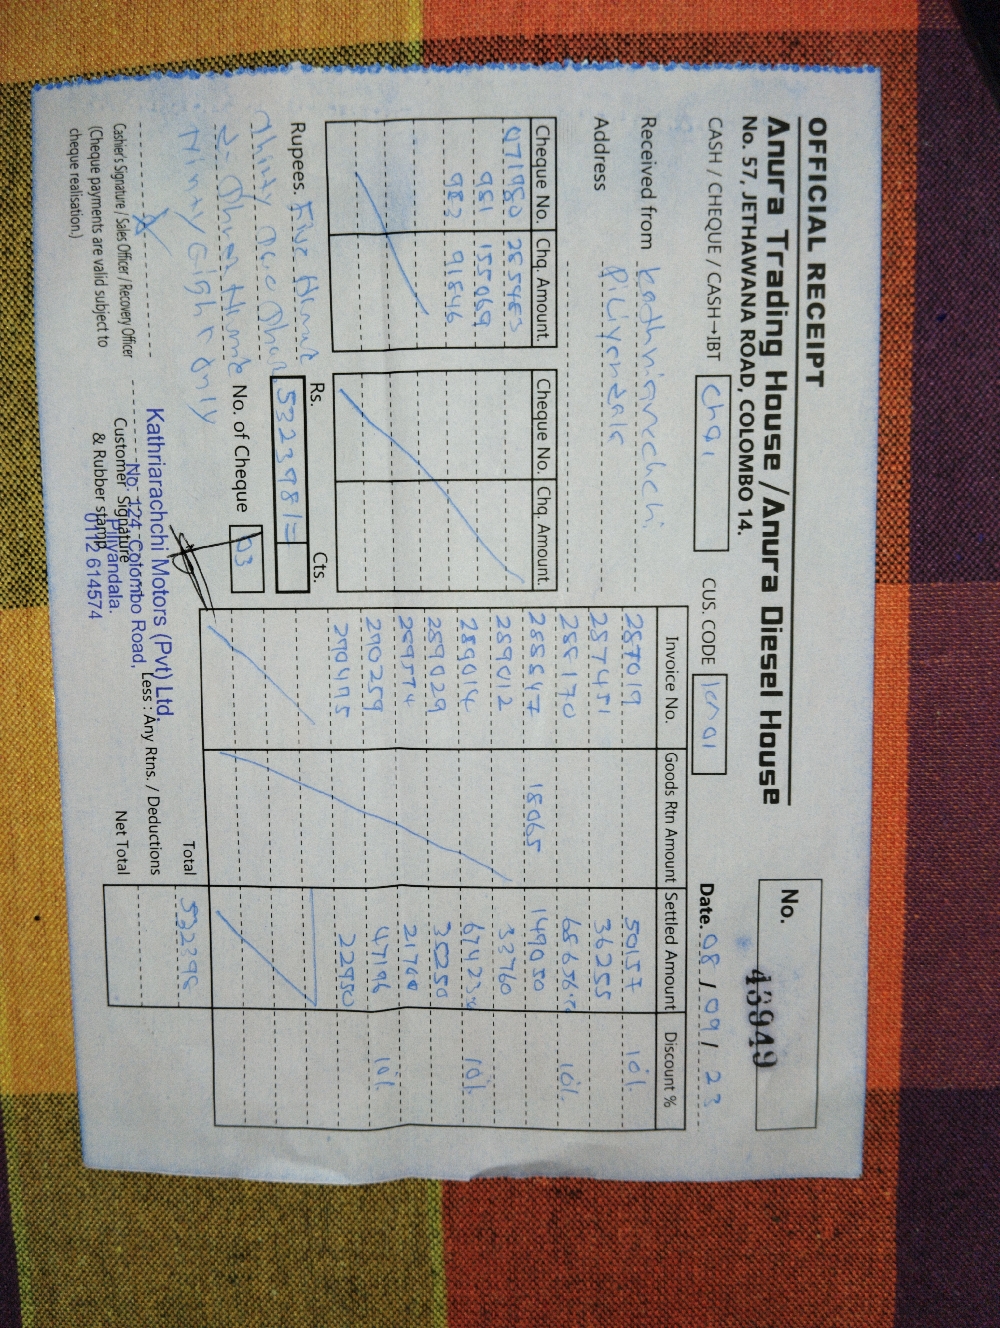 OFFICIAL RECEIPT
Anura Trading House / Anura Diesel House
No. 57, JETHAWANA ROAD, COLOMBO 14.
No. 43949
CASH / CHEQUE / CASH→IBT Chq. CUS. CODE Date. 08 / 09 / 23
Received from
Address
Cheque No. Chq. Amount.
071980 285483
981 155069
983 91846
Cheque No. Chq. Amount.
Invoice No. Goods Rtn Amount Settled Amount Discount %
287019 50157 10%
287451 36255
288170 10%
288847 18065 149050
289012 33760
289014 10%
289029 35250
289774
290259 47196 10%
290495 22950
Rupees. Five
Thirty
Ninety Eight Only
Rs. Cts.
532398/=
No. of Cheque 03
Total 532398
Less : Any Rtns. / Deductions
Net Total
Cashier's Signature / Sales Officer / Recovery Officer
(Cheque payments are valid subject to
cheque realisation.)
Customer Signature
& Rubber stamp
Kathriarachchi Motors (Pvt) Ltd.
No: 124, Colombo Road,
Piliyandala.
0112 614574